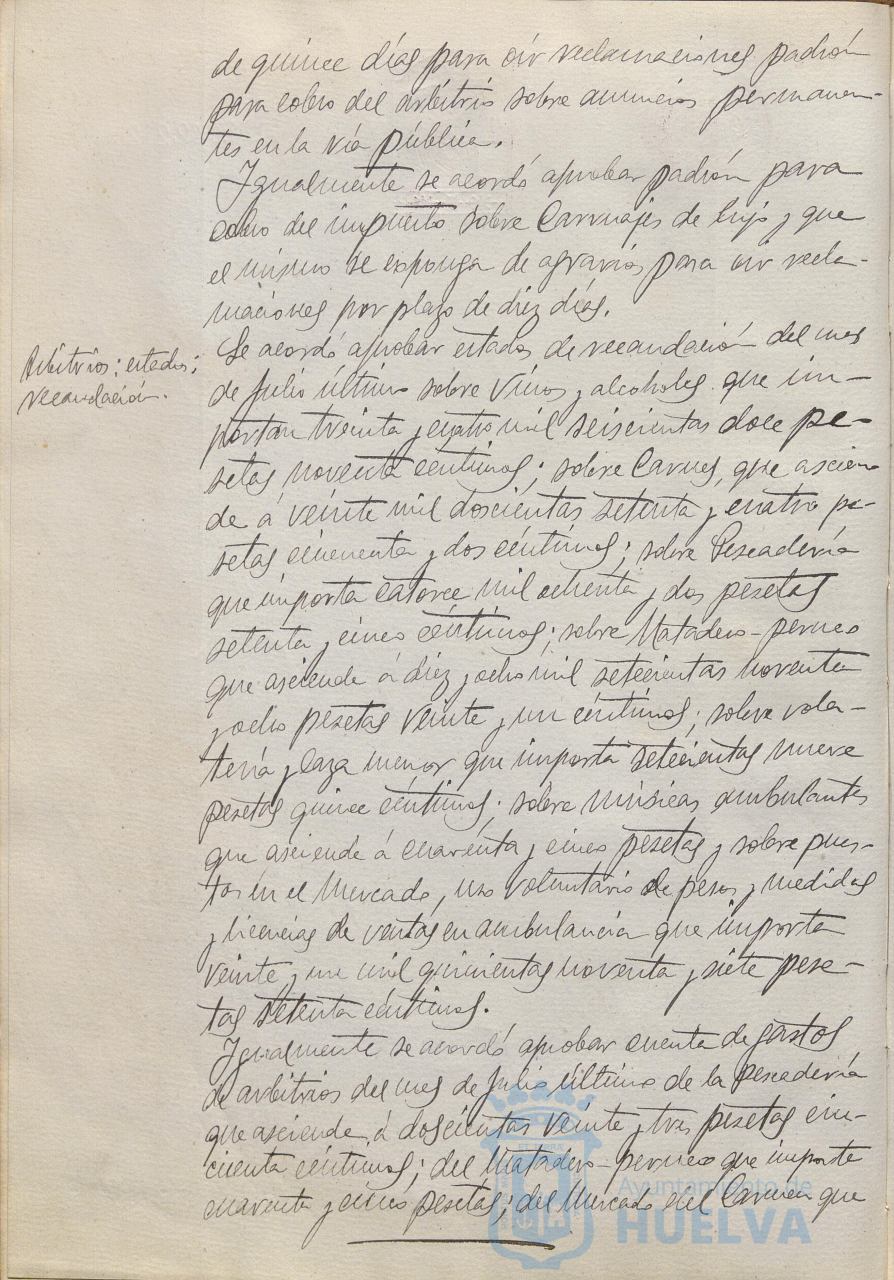 de quince días para oir reclamaciones padrón
para cobro del arbitrio sobre anuncios permanen-
tes en la vía pública.
Igualmente se acordó aprobar padrón para
cobro del impuesto sobre Carruajes de lujo y que
el mismo se exponga de agravios para oir recla-
maciones por plazo de diez días.
Arbitrios: estados;
recaudación.
Se acordó aprobar estados de recaudación del mes
de Julio último sobre Vinos y alcoholes que im-
portan treinta y cuatro mil seiscientas doce pe-
setas noventa céntimos; sobre Carnes, que ascien
de á veinte mil doscientas setenta y cuatro pe-
setas cincuenta y dos céntimos; sobre Pescadería
que importa catorce mil ochenta y dos pesetas
setenta y cinco céntimos; sobre Matadero-perneo
que asciende á diez y ocho mil setecientas noventa
y ocho pesetas veinte y un céntimos; sobre vola-
tería y caza menor que importa setecientas nueve
pesetas quince céntimos; sobre músicas ambulantes
que asciende á cuarenta y cinco pesetas y sobre pues-
tos en el Mercado, uso voluntario de pesas y medidas
y licencias de ventas en ambulancia que importa
veinte y un mil quinientas noventa y siete pese-
tas setenta céntimos.
Igualmente se acordó aprobar cuenta de gastos
de arbitrios del mes de Julio último de la pescadería
que asciende á doscientas veinte y tres pesetas cin-
cuenta céntimos; del Matadero-perneo que importa
cuarenta y cinco pesetas; del Mercado del Carmen que
Ayuntamiento de
HUELVA